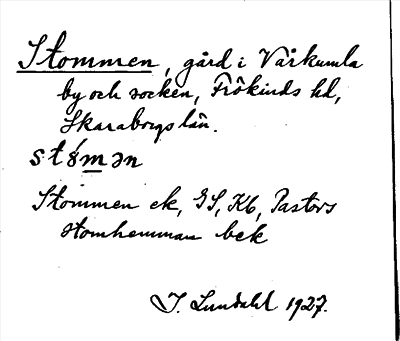 Stommen, gård i Vårkumla
by och socken, Frökinds hd,
Skaraborgs län.
stómən
Stommen ek, GS, Kb, Pastors
stomhemman bek
J. Lundahl 1927.